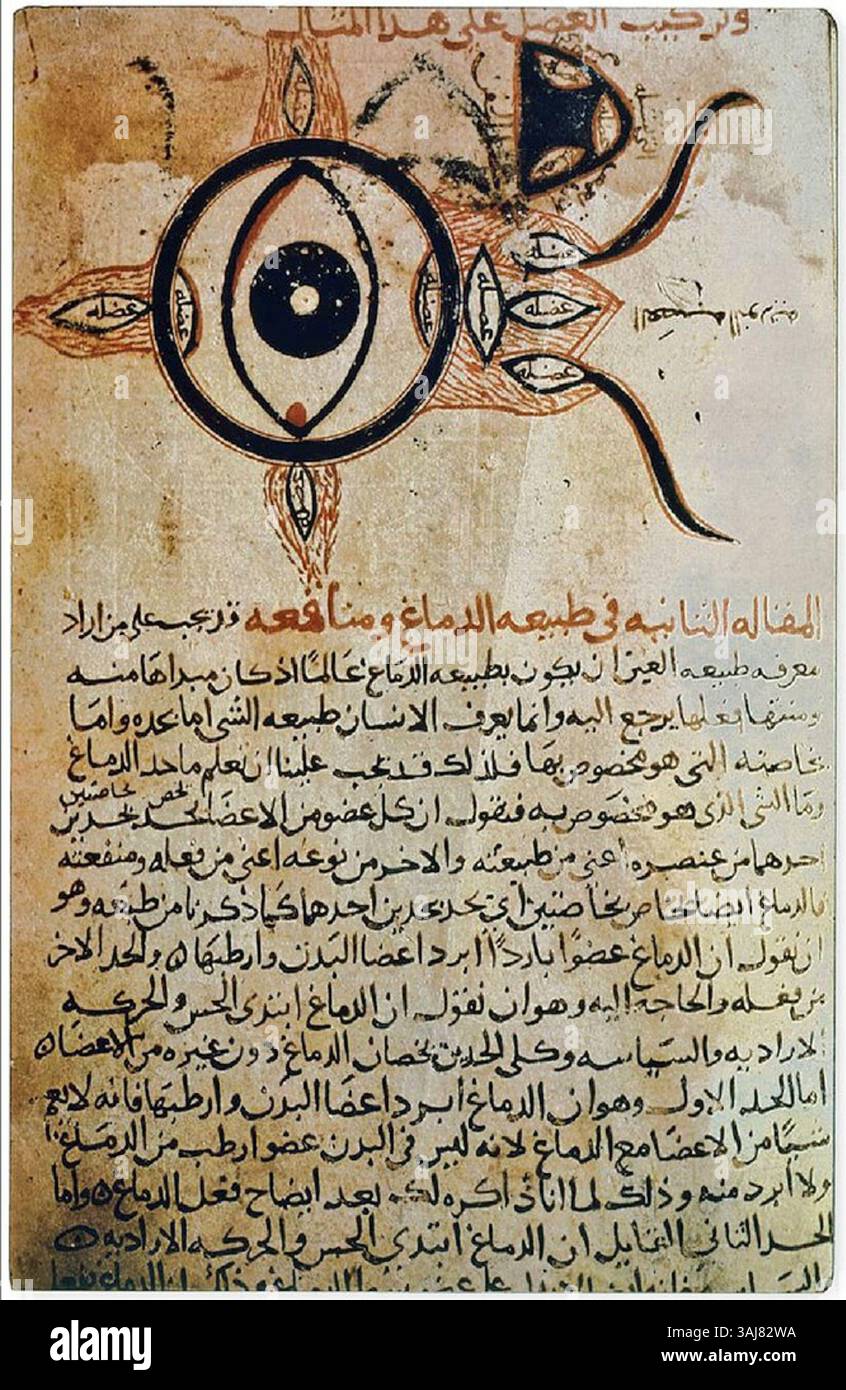 وتركيب العضل على هذا المثال
عضله
عضله
عضله
عضله
عضله
عضله
عضله
عضله
العصبه النوريه
المقاله الثانيه في طبيعه الدماغ ومنافعه قد يجب على من اراد
معرفه طبيعه العين ان يكون بطبيعه الدماغ عالمًا اذ كان مبداها منه
ومنتها فعلها يرجع اليه وانما يعرف الانسان طبيعه الشي اما بحده واما
بخاصته التي هو مخصوص بها فلذلك قد يجب علينا ان نعلم ما حد الدماغ
وما الشي الذي هو مخصوص به فنقول ان كل عضو من الاعضا يحد بحدين
يخص بخاصتين
احدهما من عنصره اعني من طبيعته والاخر من نوعه اعني من فعله ومنفعته
فالدماغ ايضا بخاصتين اي يحد بحدين احدهما كما ذكرنا من طبعه وهو
ان نقول ان الدماغ عضوًا باردًا ابرد اعضا البدن وارطبها والحد الاخر
من فعله والحاجه اليه وهو ان نقول ان الدماغ ابتدى الحس والحركه
الاراديه والسياسه وكلى الحدين يخصان الدماغ دون غيره من الاعضا
اما الحد الاول وهو ان الدماغ ابرد اعضا البدن وارطبها فانه لا يعم
شيا من الاعضا مع الدماغ لانه ليس في البدن عضو ارطب من الدماغ
ولا ابرد منه وذلك لما انا ذاكره لك بعد ايضاح فعل الدماغ واما
الحد الثاني القايل ان الدماغ ابتدى الحس والحركه الاراديه
alamy
Image ID: 3AJ82WA
www.alamy.com